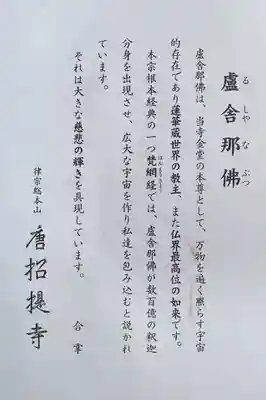 盧舎那佛
る しや な ぶつ
盧舎那佛は、当寺金堂の本尊として、万物を遍く照らす宇宙
的存在であり蓮華蔵世界の教主、また仏界最高位の如来です。
本宗根本経典の一つ梵網経では、盧舎那佛が数百億の釈迦
ぼんもうきょう
分身を出現させ、広大な宇宙を作り私達を包み込むと説かれ
ています。
それは大きな慈悲の輝きを具現しています。
合掌
律宗総本山
唐招提寺